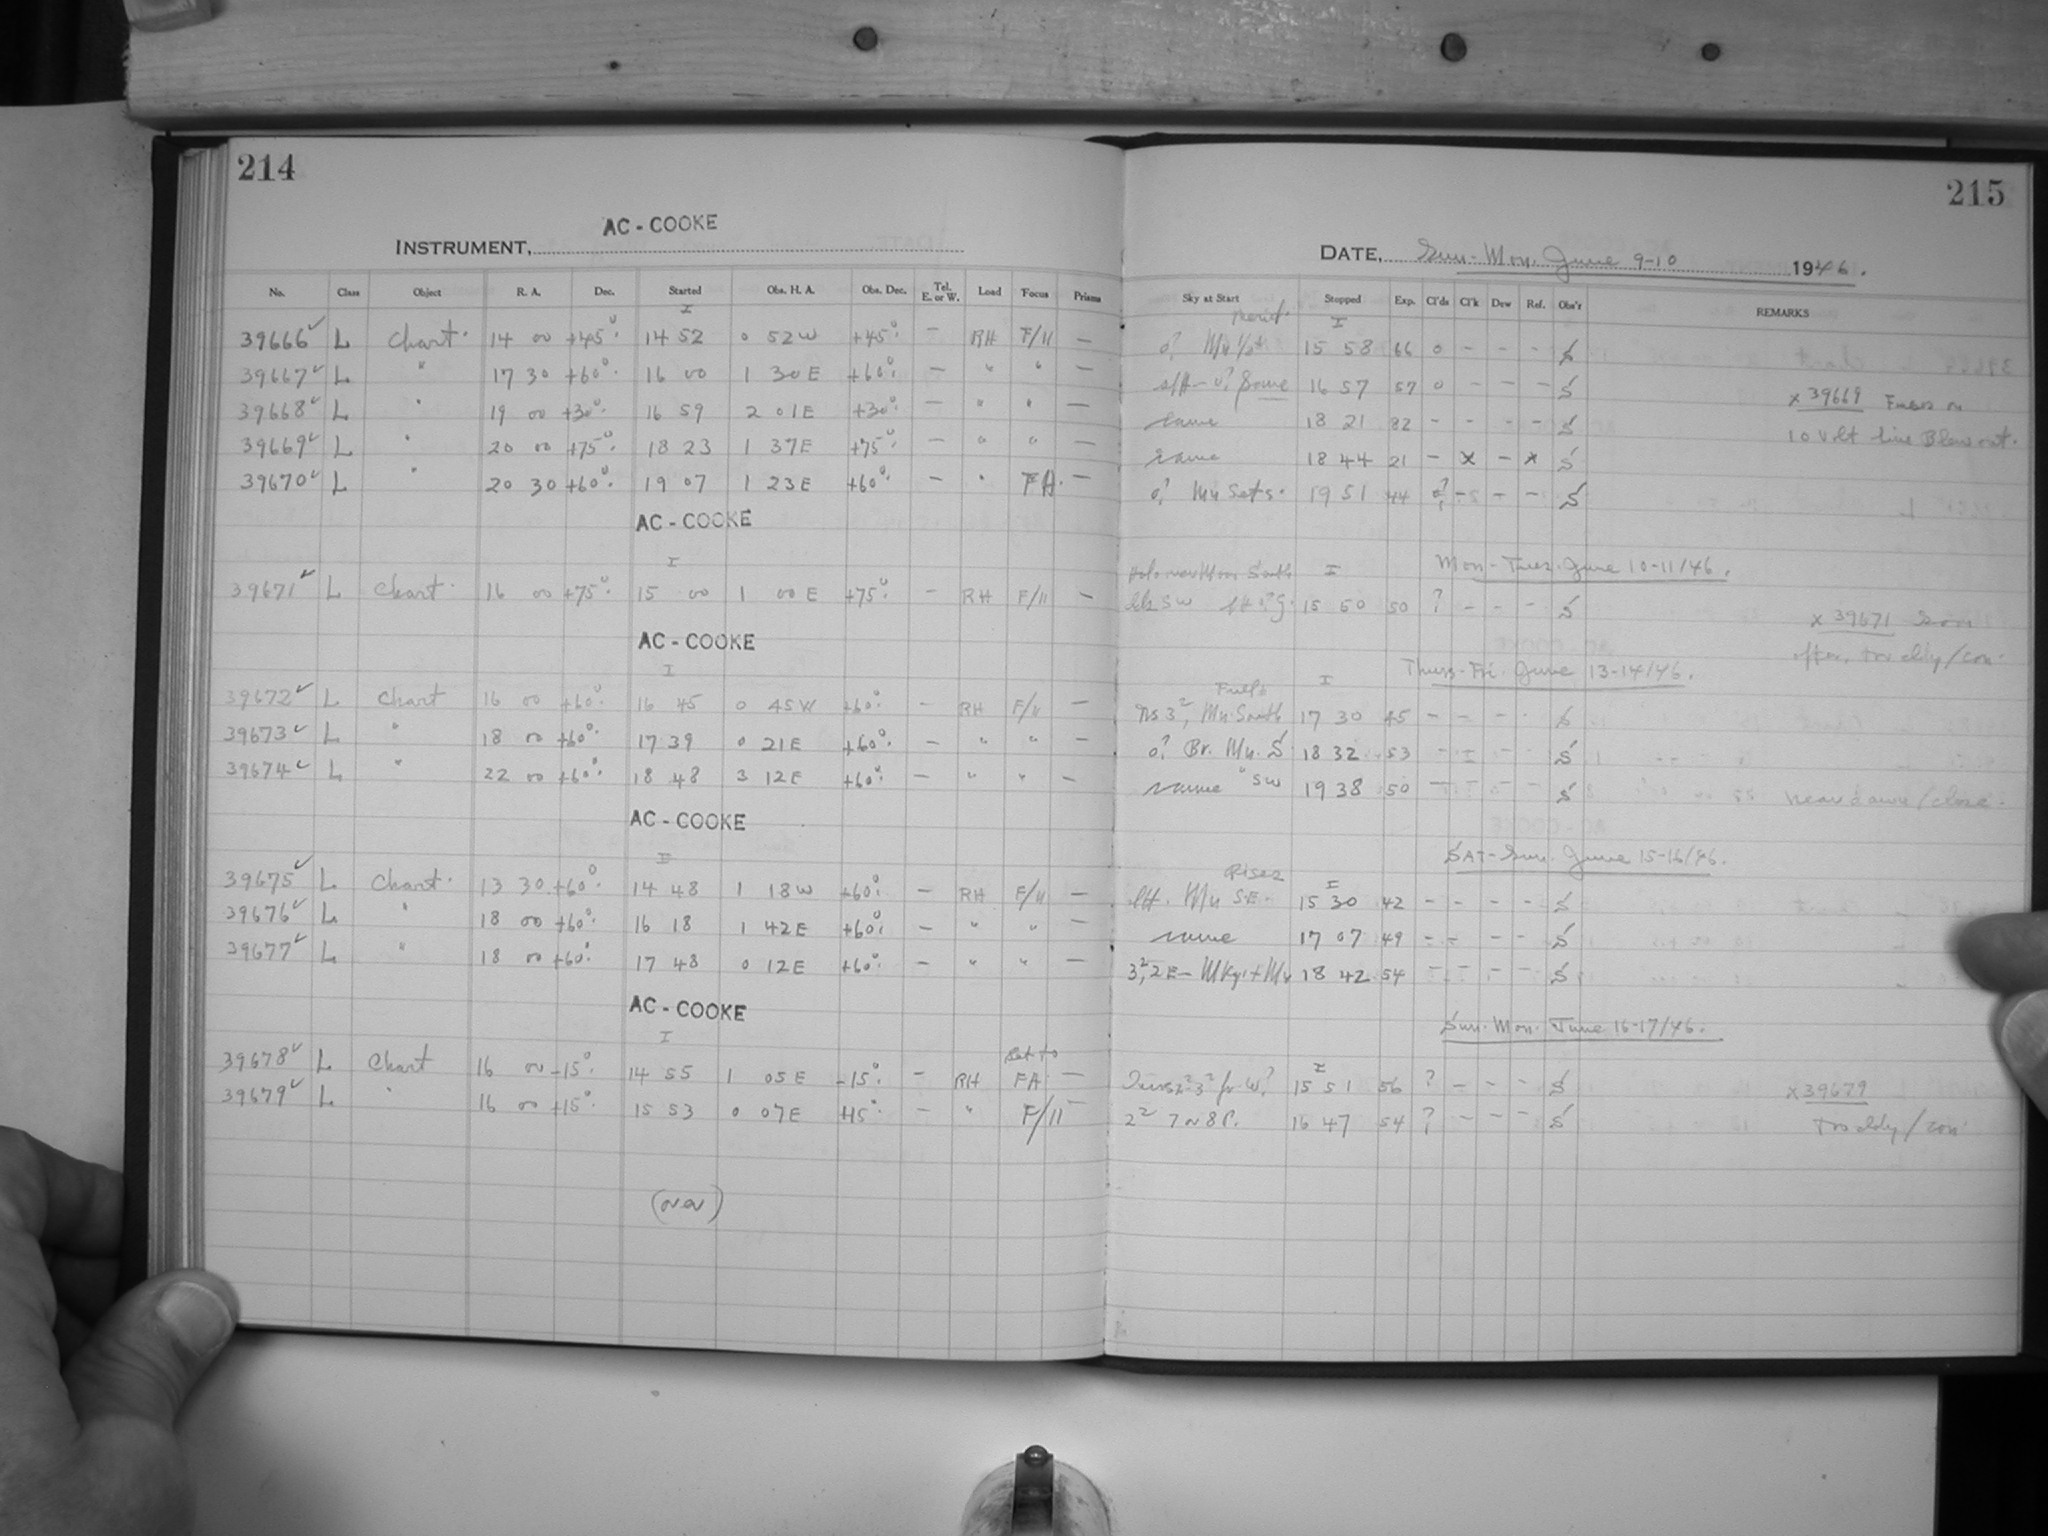 214
AC - COOKE
INSTRUMENT,
No. Class Object R. A. Dec. Started Obs. H. A. Obs. Dec. Tel. E. or W. Load Focus Prisms
I
39666 ✓ L Chart. 14 00 +45°. 14 52 0 52 W +45°. – RH F/11 –
39667 ✓ L " 17 30 +60°. 16 00 1 30 E +60°. – " " –
39668 ✓ L " 19 00 +30°. 16 59 2 01 E +30°. – " " –
39669 ✓ L " 20 00 +75°. 18 23 1 37 E +75°. – " " –
39670 ✓ L " 20 30 +60°. 19 07 1 23 E +60°. – " FA. –
AC - COOKE
I
39671 ✓ L Chart. 16 00 +75°. 15 00 1 00 E +75°. – RH F/11 –
AC - COOKE
I
39672 ✓ L Chart 16 00 +60°. 16 45 0 45 W +60°. – RH F/11 –
39673 ✓ L " 18 00 +60°. 17 39 0 21 E +60°. – " " –
39674 ✓ L " 22 00 +60°. 18 48 3 12 E +60°. – " " –
AC - COOKE
39675 ✓ L Chart. 13 30 +60°. 14 48 1 18 W +60°. – RH F/11 –
39676 ✓ L " 18 00 +60°. 16 18 1 42 E +60°. – " " –
39677 ✓ L " 18 00 +60°. 17 48 0 12 E +60°. – " " –
AC - COOKE
I
39678 ✓ L Chart 16 00 –15°. 14 55 1 05 E –15°. – RH FA –
39679 ✓ L " 16 00 +15°. 15 53 0 07 E +15°. – " F/11 –
215
DATE, Sun - Mon. June 9-10 1946.
Sky at Start Stopped Exp. Cl'ds Cl'k Dew Ref. Obs'r REMARKS
I
15 58 66 0 – – – S
same 16 57 57 0 – – – S
same 18 21 82 – – – – S
x 39669 Fuses on
10 Volt line Blew out.
same 18 44 21 – x – x S
0? Mn Sets. 19 51 44 0? – – – S
Mon - Tues. June 10-11/46.
I
SW 15 50 50 ? – – – S
x 39671
Thurs - Fri. June 13-14/46.
I
Mn. South 17 30 45 – – – – S
0? Br. Mn. S 18 32 53 – – – – S
same " SW 19 38 50 – – – – S near dawn / close.
SAT - Sun. June 15-16/46.
Rises
I
Mn S.E. 15 30 42 – – – – S
same 17 07 49 – – – – S
18 42 54 – – – – S
Sun. Mon. June 16-17/46.
I
15 51 56 ? – – – S
x 39679
16 47 54 ? – – – S